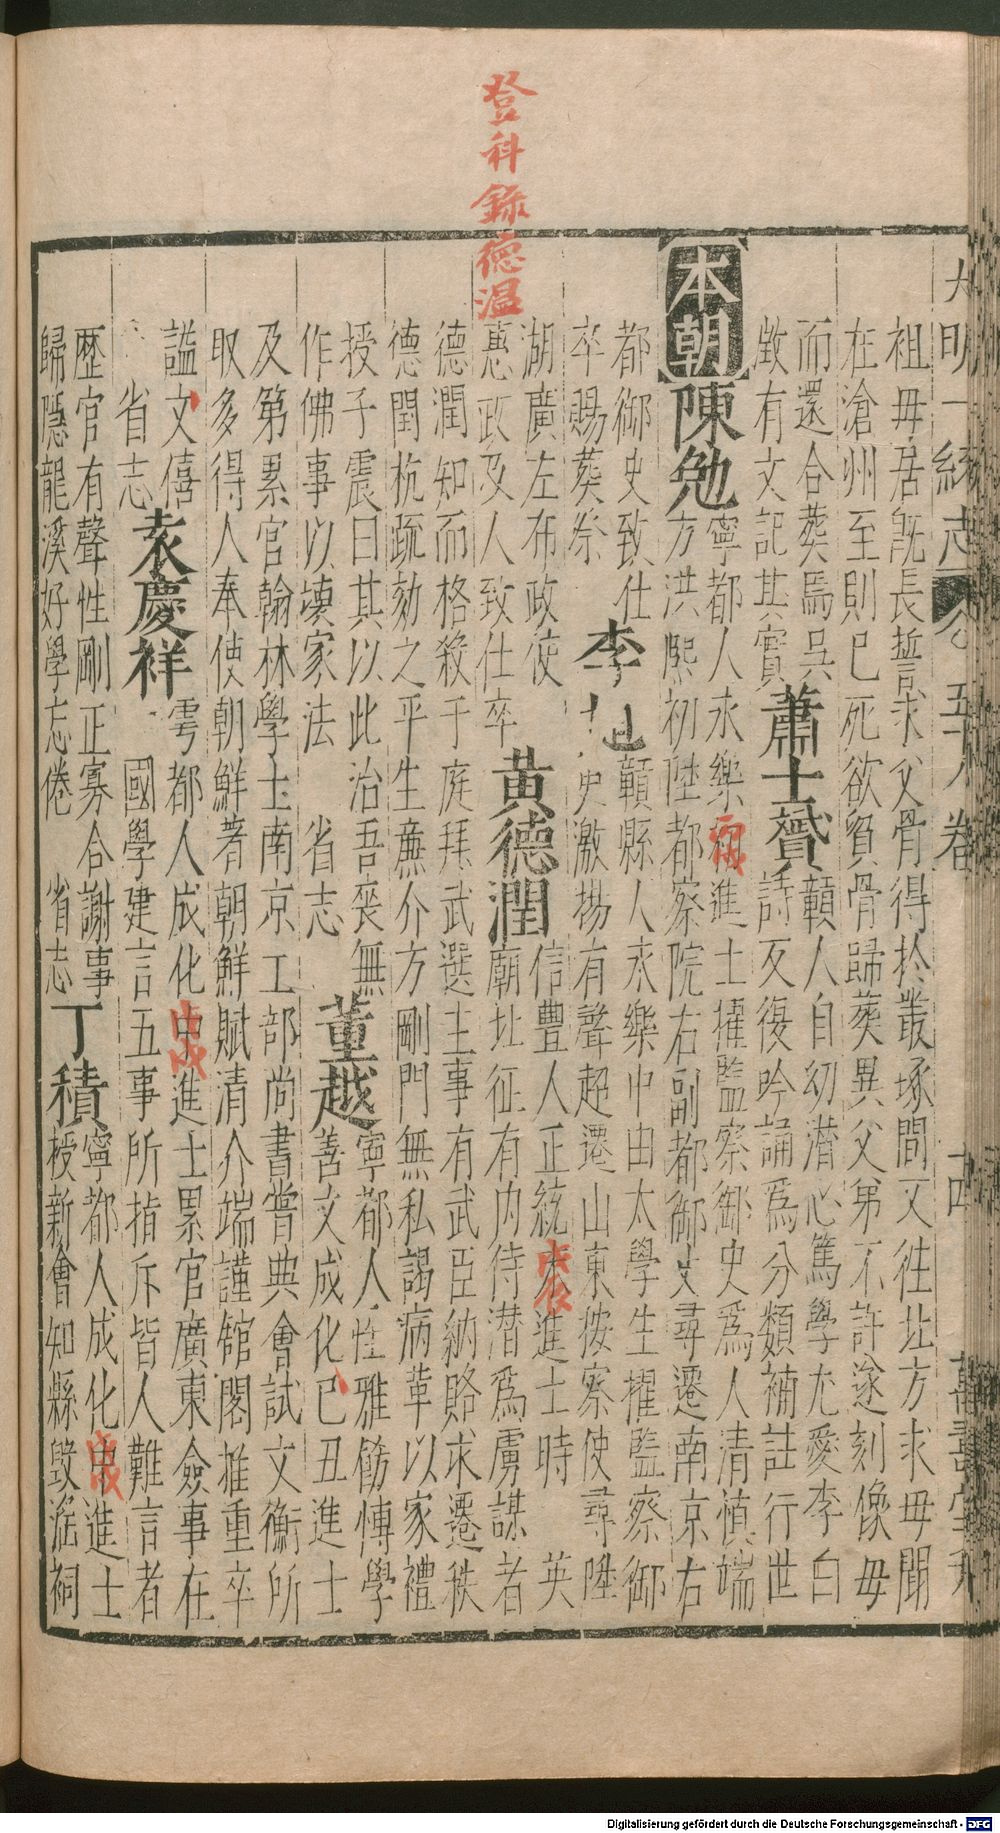 登科錄德温
大明一統志 五十八卷 十四 萬壽堂刊
祖毋居既長誓求父骨得於叢塚間又徃北方求毋聞
在滄州至則已死欲負骨歸葬異父弟不許遂刻像毋
而還合葬焉吳
澂有文記其實蕭士贇贛人自幼潛心篤學尤愛李白
詩反復吟誦為分類補註行世
本朝陳勉寧都人永樂進士擢監察御史為人清慎端
方洪熙初陞都察院右副都御史尋遷南京右
都御史致仕
卒賜葬祭李贛縣人永樂中由太學生擢監察御
史激揚有聲超遷山東按察使尋陞
湖廣左布政使
惠政及人致仕卒黄德潤信豐人正統進士時英
廟北征有内侍潜為虜謀者
德潤知而格殺于庭拜武選主事有武臣納賂求遷秩
德閏抗疏劾之平生亷介方剛門無私謁病革以家禮
授子震曰其以此治吾喪無
作佛事以壊家法省志董越寧都人性雅飭愽學
善文成化己丑進士
及第累官翰林學士南京工部尚書嘗典會試文衡所
取多得人奉使朝鮮著朝鮮賦清介端謹舘閣推重卒
謚文僖
省志袁慶祥雩都人成化進士累官廣東僉事在
國學建言五事所指斥皆人難言者
歷官有聲性剛正寡合謝事
歸隱龍溪好學忘倦省志丁積寧都人成化進士
授新會知縣毀滛祠
戊戌
戊辰
戊戌